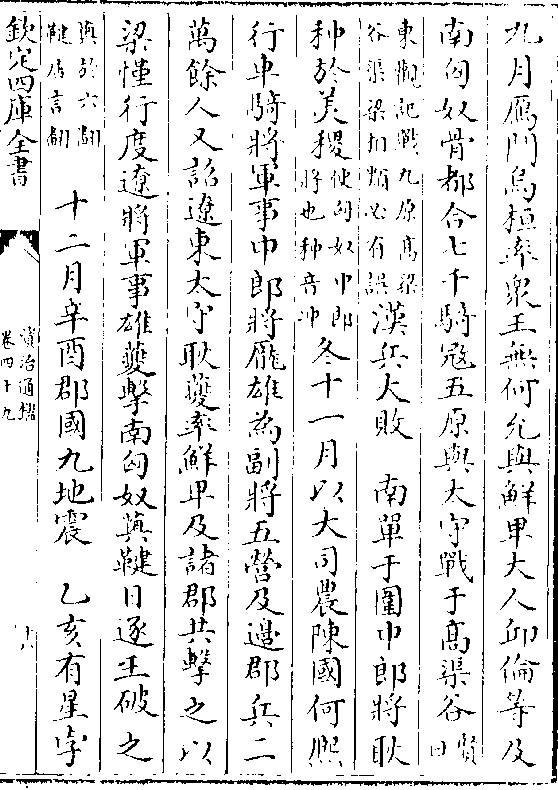 九月鴈門烏桓率衆王無何允與鮮卑大人邱倫等及
南匈奴骨都合七千騎宼五原與太守戰于髙渠谷賢曰
東觀記戰九原髙梁谷渠梁相類必有誤漢兵大敗　南單于圍中郎將耿
种於美稷使匈奴中郎將也种音冲冬十一月以大司農陳國何熙
行車騎將軍事中郎將龎雄為副將五營及邉郡兵二
萬餘人又詔遼東太守耿夔率鮮卑及諸郡共擊之以
梁慬行度遼將軍事雄夔擊南匈奴薁鞬日逐王破之
薁於六翻鞬居言翻　十二月辛酉郡國九地震　乙亥有星孛
欽定四庫全書
資治通鑑
卷四十九
十八